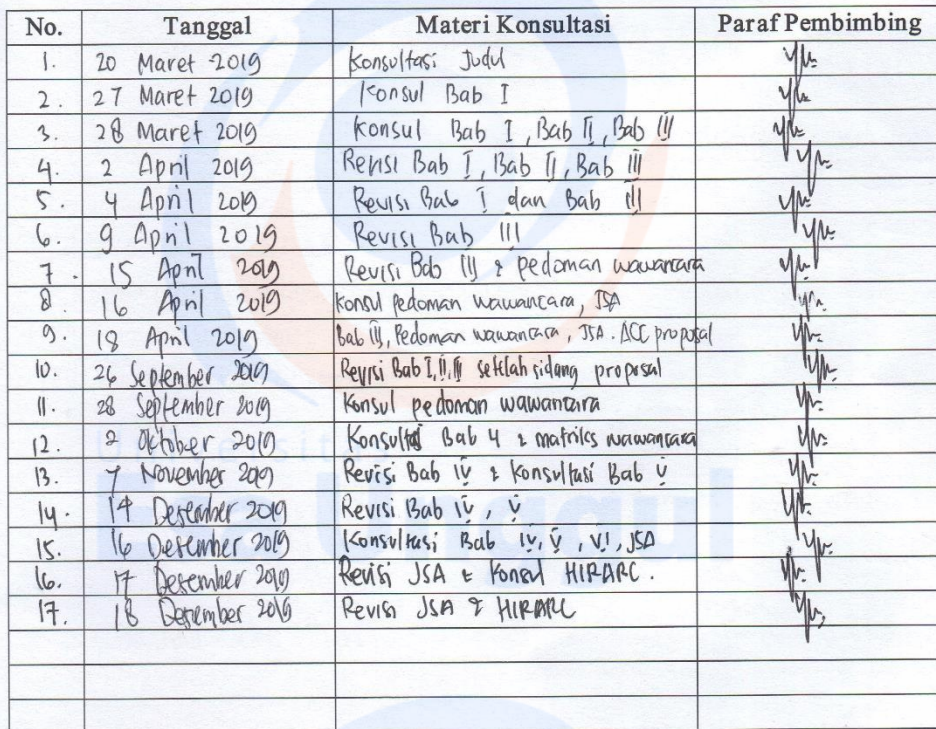 No. Tanggal Materi Konsultasi Paraf Pembimbing
1. 20 Maret 2019 Konsultasi Judul
2. 27 Maret 2019 Konsul Bab I
3. 28 Maret 2019 Konsul Bab I, Bab II, Bab III
4. 2 April 2019 Revisi Bab I, Bab II, Bab III
5. 4 April 2019 Revisi Bab I dan Bab III
6. 9 April 2019 Revisi Bab III
7. 15 April 2019 Revisi Bab III & pedoman wawancara
8. 16 April 2019 Konsul Pedoman wawancara, JSA
9. 18 April 2019 Bab III, Pedoman wawancara, JSA. ACC proposal
10. 26 September 2019 Revisi Bab I, II, III setelah sidang proposal
11. 28 September 2019 Konsul pedoman wawancara
12. 2 Oktober 2019 Konsultasi Bab 4 & matriks wawancara
13. 7 November 2019 Revisi Bab IV & Konsultasi Bab V
14. 14 Desember 2019 Revisi Bab IV, V
15. 16 Desember 2019 Konsultasi Bab IV, V, VI, JSA
16. 17 Desember 2019 Revisi JSA & Konsul HIRARC.
17. 18 Desember 2019 Revisi JSA & HIRARC
Universitas
Esa Unggul